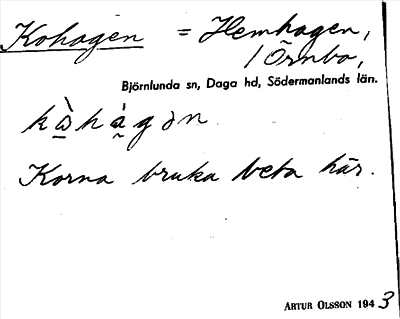 Kohagen = Hemhagen,
/ Örnbo,
Björnlunda sn, Daga hd, Södermanlands län.
kὼhàgən
Korna bruka beta här.
ARTUR OLSSON 1943